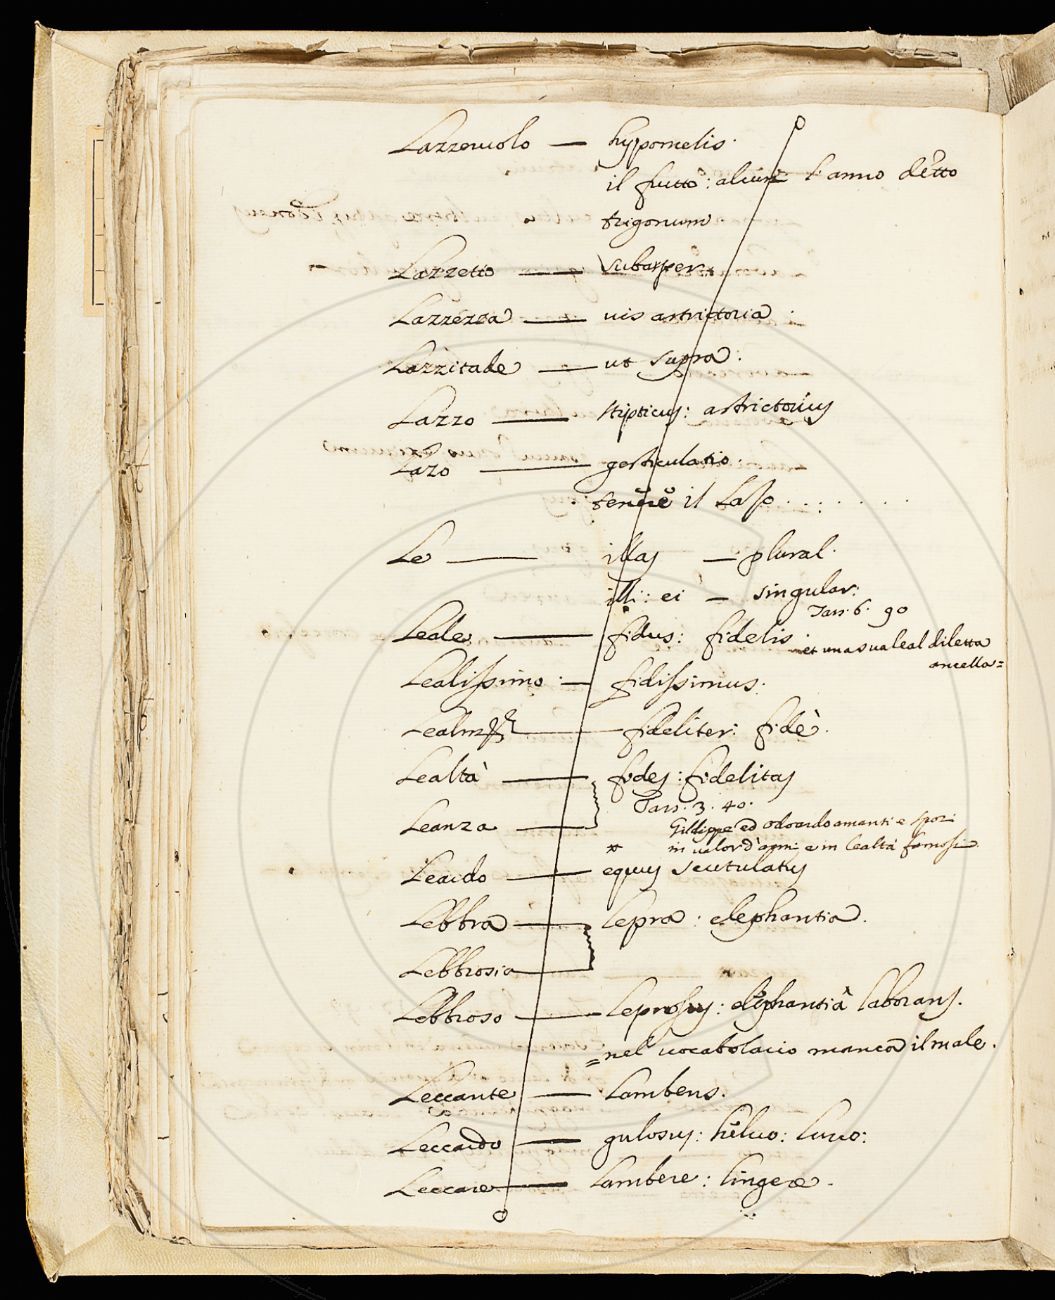 Lazzeruolo — hypomelis.
il frutto: alcuni l'anno detto
trigonum.
Lazzetto — subasper.
Lazzezza — vis astrictoria.
Lazzitade — ut supra.
Lazzo — stipticus: astrictorius
Lazo — gesticulatio.
tenere il Laso
Le — illas — plural.
illi: ei — singular:
Tass. 6. 90
Leale — fidus: fidelis.
et una sua leal diletta
ancella=
Lealissimo: — fidissimus.
— fideliter: fidè.
Lealtà — fides: fidelitas
Leanza
Tass. 3. 40.
ed Odoardo amanti e sposi
in valor d'armi e in lealtà famosi.
Leardo — equus scutulatus
Lebbra — lepra: elephantia.
Lebbrosia
Lebbroso — leprosus: elephantiâ laborans.
=nel vocabolario manca il male.
Leccante — Lambens.
Leccardo — gulosus: helluo: lurco:
Leccare — Lambere: lingere.